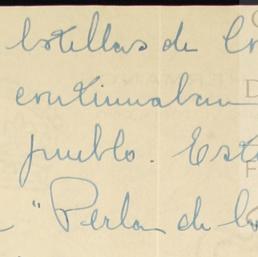 botellas de Co
continuaban
pueblo. Est
"Perlas de Co